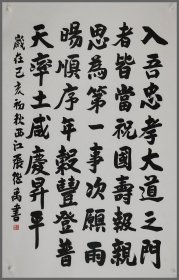 入吾忠孝大道之門
者皆當祝國壽報親
恩為第一事次願雨
暘順序年穀豐登普
天率土咸慶昇平
歲在己亥初秋西江張繼禹書